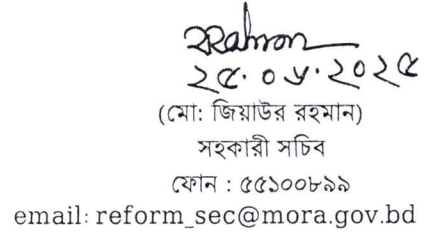 Rahman
২৫.০৬.২০২৫
(মো: জিয়াউর রহমান)
সহকারী সচিব
ফোন : ৫৫১০০৮৯৯
email: reform_sec@mora.gov.bd